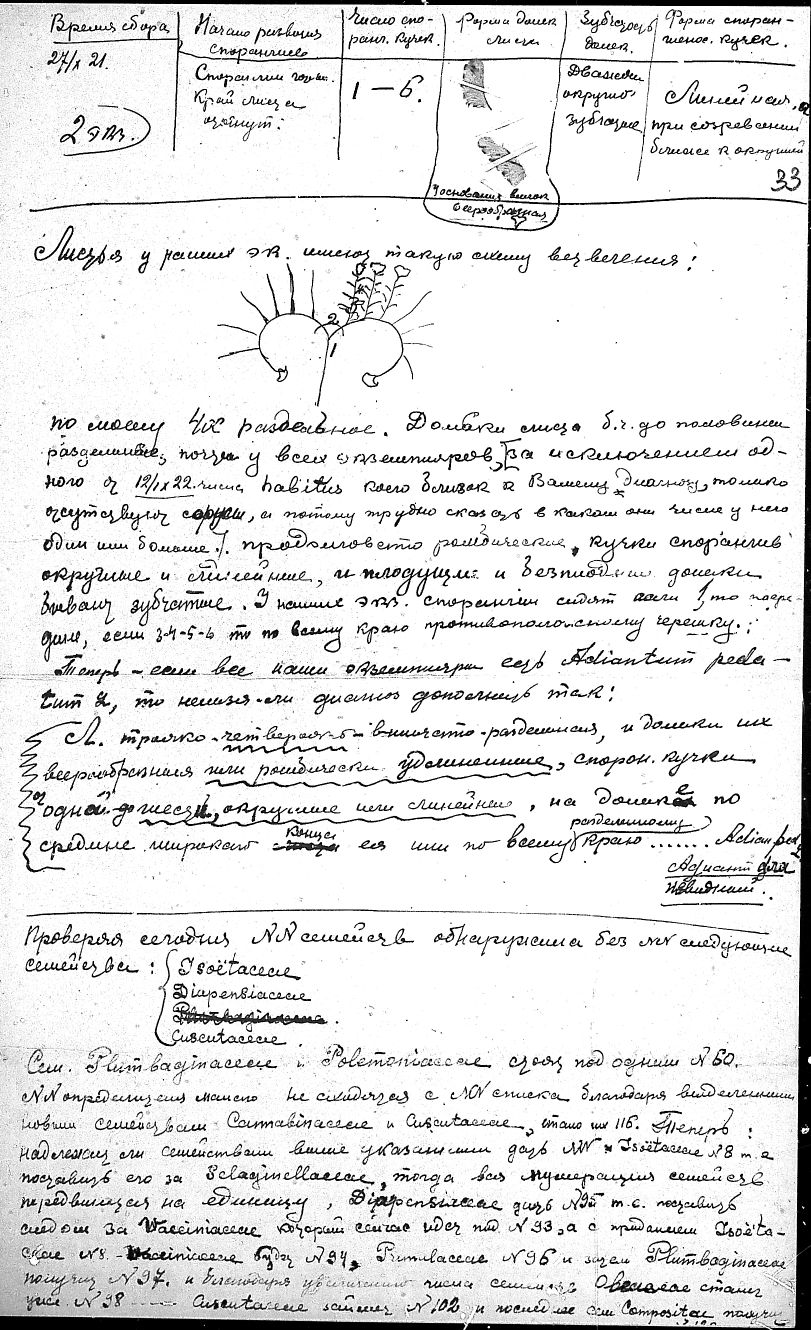 Время сбора
27/IX 21.
2 экз.
Начало развития
спорангиев
Спорангии
Край листа
Число спо-
ранг. кучек.
1 — 6.
Форма долек
листа
У основания
веерообразная
Зубчатость
долек.
Дважды
округло-
зубчатые
Форма споран-
гиенос. кучек.
Линейная, а
при созревании
ближе к округлой
33
Листья у наших экз. имеют такую схему ветвления:
2
1
по моему 4х раздельное. Дольки листа б.ч. до половины
разделенные, почти у всех экземпляров, [за исключением од-
ного от 12/IX 22. habitus коего близок к Вашему диагнозу, только
отсутствуют сорусы, а потому трудно сказать в каком они числе у него
один или больше]. продолговато ромбические, кучки спорангиев
округлые и линейные, и плодущие и бесплодные дольки
бывают зубчатые. У наших экз. спорангии сидят если 1, то посре-
дине, если 3-4-5-6 то по всему краю противоположному черешку.
Теперь – если все наши экземпляры есть Adiantum peda-
tum L, то нельзя-ли диагноз дополнить так:
Л. трояко-четвероякo-вильчато-раздельная, и дольки их
веерообразныя или ромбически удлиненные, спорон. кучки
от одной до шести, округлые или линейные, на дольке по
средине широкого конца ея или по всему разделенному краю ....... Adian. ped.
Адиант
Проверяя сегодня NN семейств обнаружила без NN следующие
семейства: Isoëtaceae
Diapensiaceae
Plumbaginaceae.
Cuscutaceae.
Сем. Plumbaginaceae и Polemoniaceae стоят под одним N 50.
NN определителя не сходятся с NN списка благодаря выделенным
новым семействам Cannabinaceae и Cuscutaceae, стало их 116. Теперь:
надлежит ли семействам выше указанным дать NN Isoëtaceae N 8 т.е
поставить его за Selaginellaceae, тогда вся нумерация семейств
передвинется на единицу, Diapensiaceae дать N 95 т.е. поставить
следом за Vacciniaceae который сейчас идет под N 93, а с приданием Isoëta-
ceae N 8. – Vacciniaceae будет N 94, Primulaceae N 96 и затем Plumbaginaceae
получит N 97. и благодаря увеличению числа семейств Oleaceae станет
уже N 98 — Cuscutaceae займет N 102 и последнее сем Compositae получит